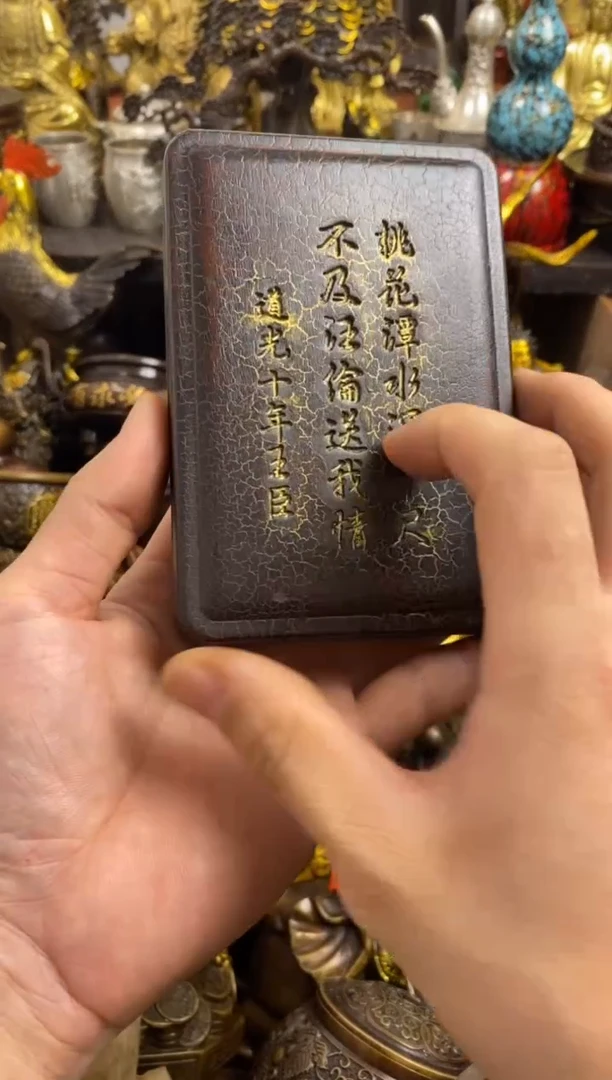 桃花潭水深尺
不及汪倫送我情
道光十年王臣